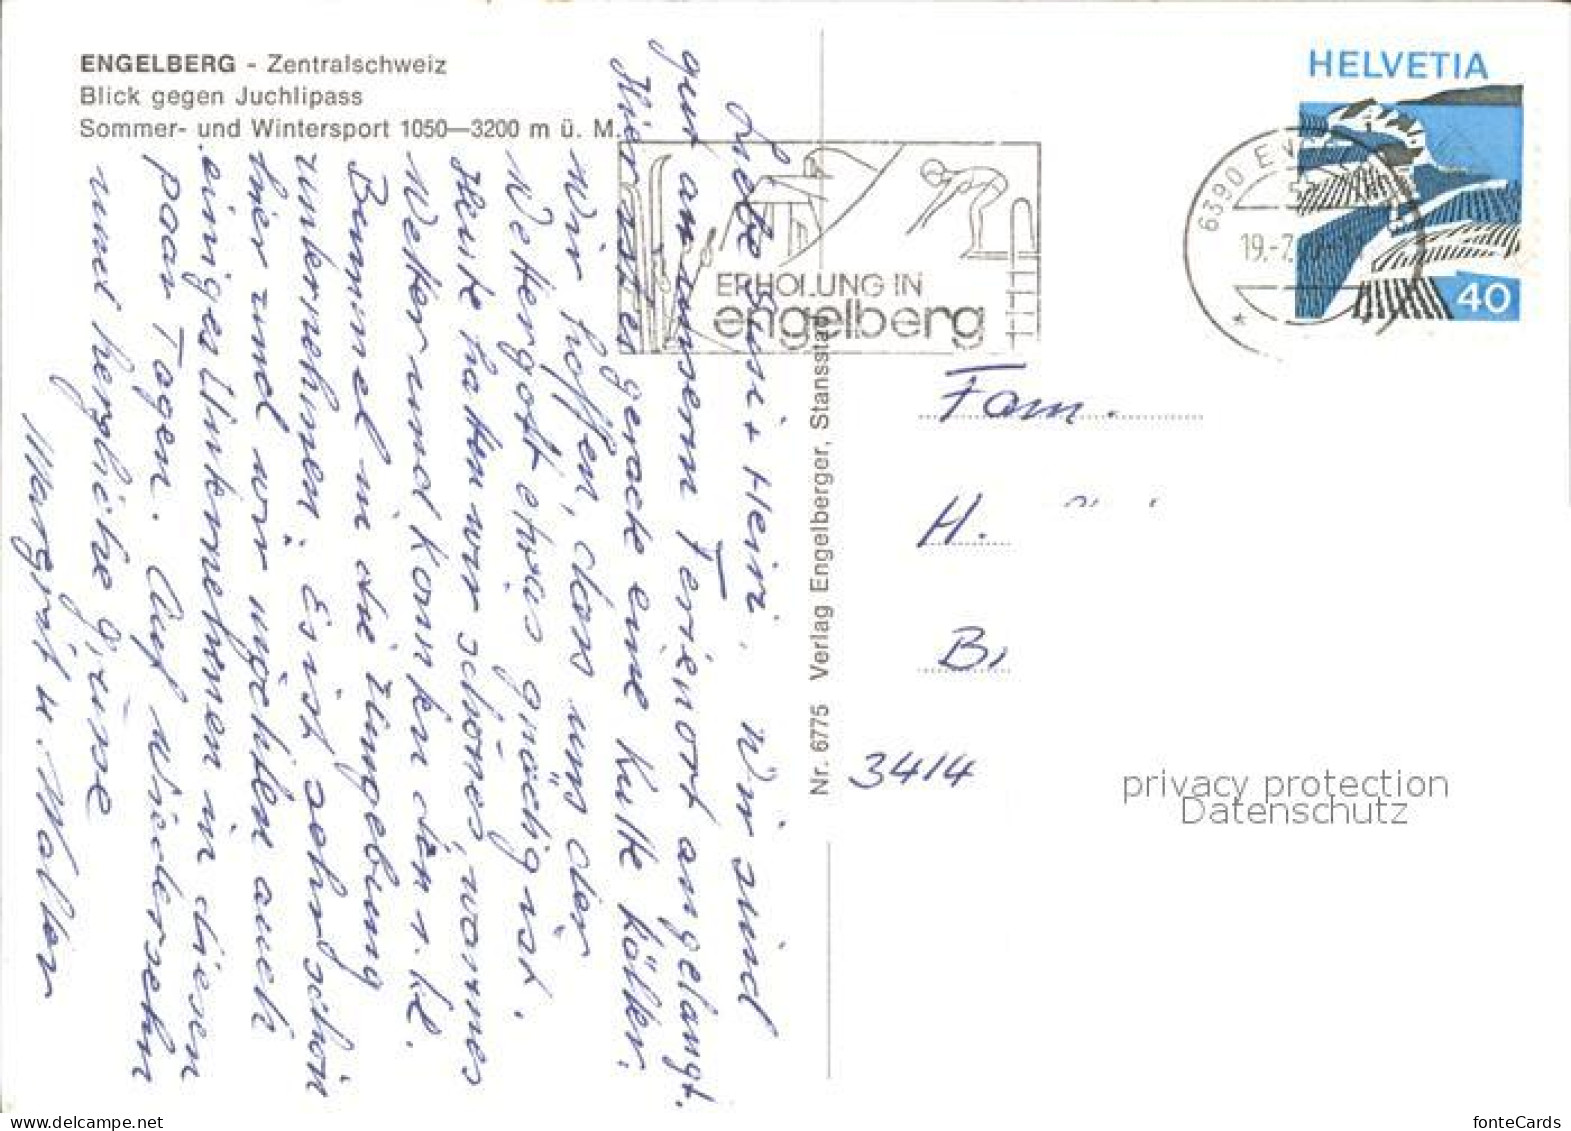 ENGELBERG - Zentralschweiz
Blick gegen Juchlipass
Sommer- und Wintersport 1050—3200 m ü. M.
Liebe Susi + Heiri, Wir sind
gut an unserm Ferienort angelangt.
Hier ist es gerade eine Kutte kälter.
Wir hoffen, dass uns der
Wettergott etwas gnädig ist.
Heute hatten wir schönes, warmes
Wetter und konnten den 1. kl.
Bummel in die Umgebung
unternehmen. Es ist sehr schön
hier und wir möchten auch
einiges Unternehmen in diesen
paar Tagen. Auf Wiedersehn
und herzliche Grüsse
Margrit u. Walter
Nr. 6775 Verlag Engelberger, Stansstad
ERHOLUNG IN
engelberg
6390 EN
19.-7.
HELVETIA
40
Fam.
H.
3414
privacy protection
Datenschutz
fonteCards